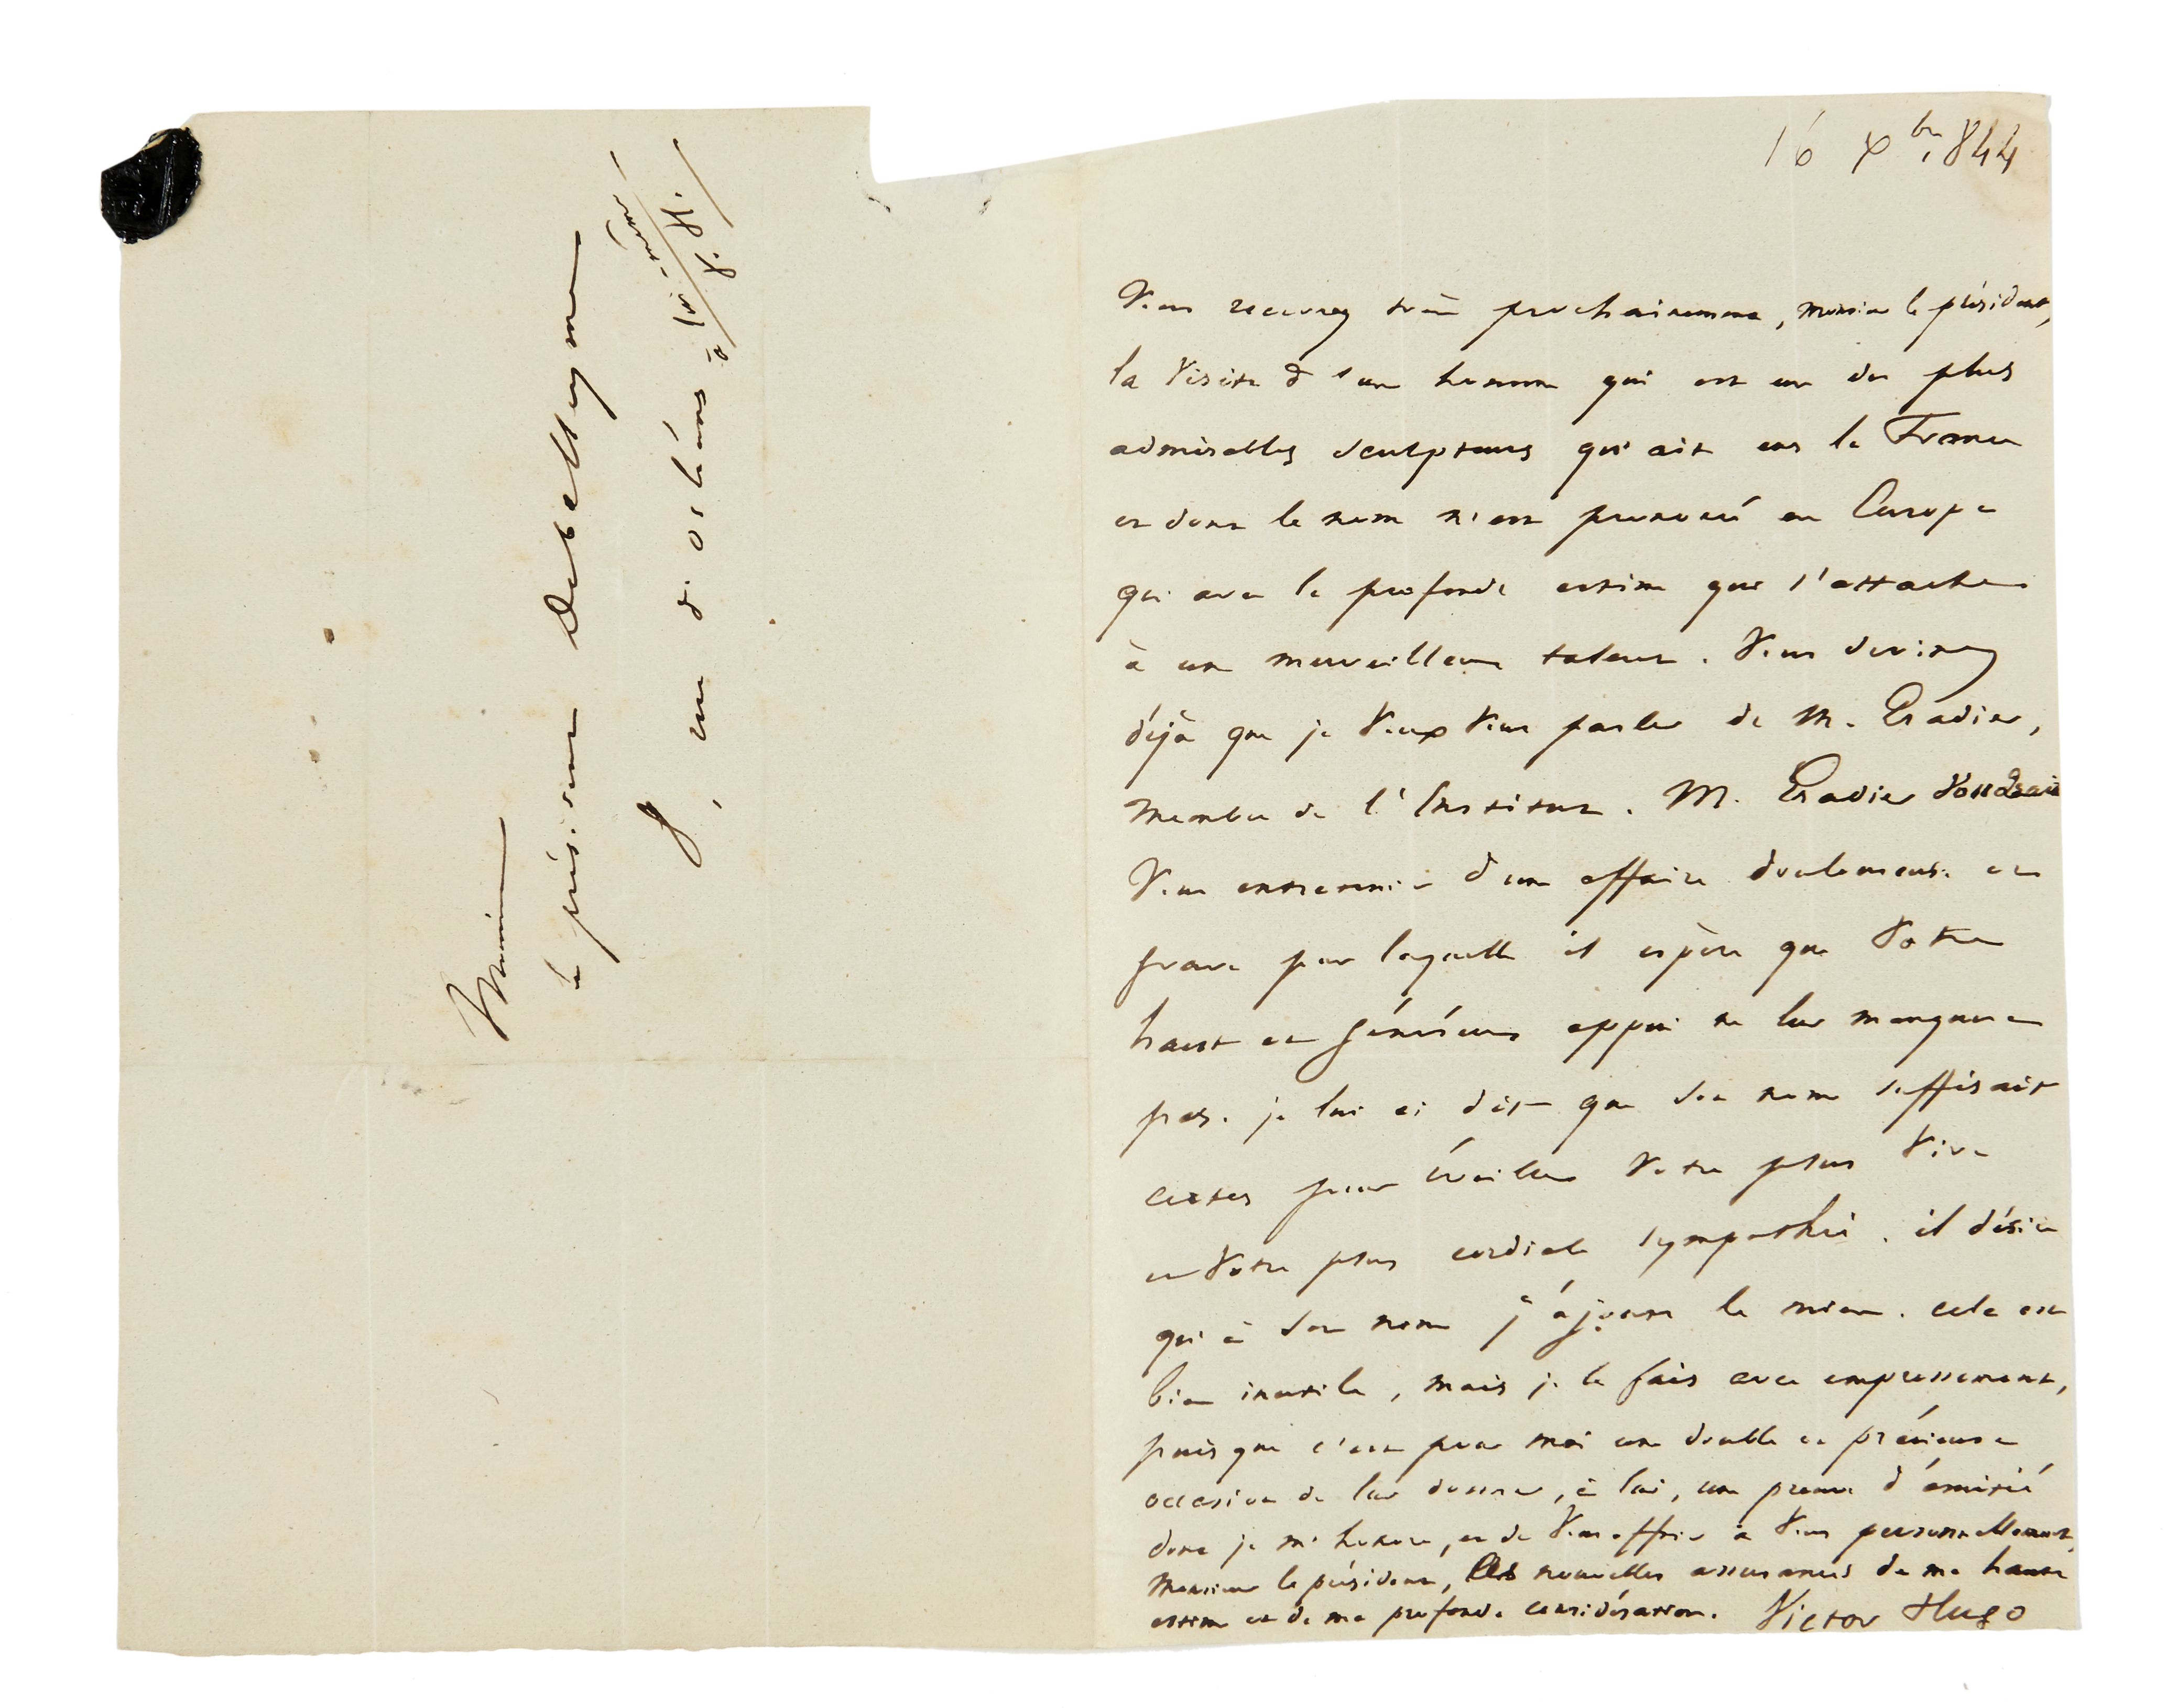 Monsieur
le président Debelleyme
9, rue d'orléans
à lui-même
V. H.
16 Xbre 1844
Vous recevrez très prochainement, monsieur le président,
la visite d'un homme qui est un des plus
admirables sculpteurs qu'ait eus la France
et dont le nom n'est prononcé en Europe
qu'avec la profonde estime qui s'attache
à un merveilleux talent. Vous devinez
déjà que je veux vous parler de M. Pradier,
membre de l'Institut. M. Pradier voudrait
vous entretenir d'une affaire douloureuse et
grave pour laquelle il espère que votre
haut et généreux appui ne lui manquera
pas. je lui ai dit que son nom suffisait
certes pour éveiller votre plus vive
et votre plus cordiale sympathie. il désire
qu'à son nom j'ajoute le mien. cela est
bien inutile, mais je le fais avec empressement,
puisque c'est pour moi une double et précieuse
occasion de lui donner, à lui, une preuve d'amitié
dont je m'honore, et de vous offrir à vous personnellement,
Monsieur le président, les nouvelles assurances de ma haute
estime et de ma profonde considération. Victor Hugo